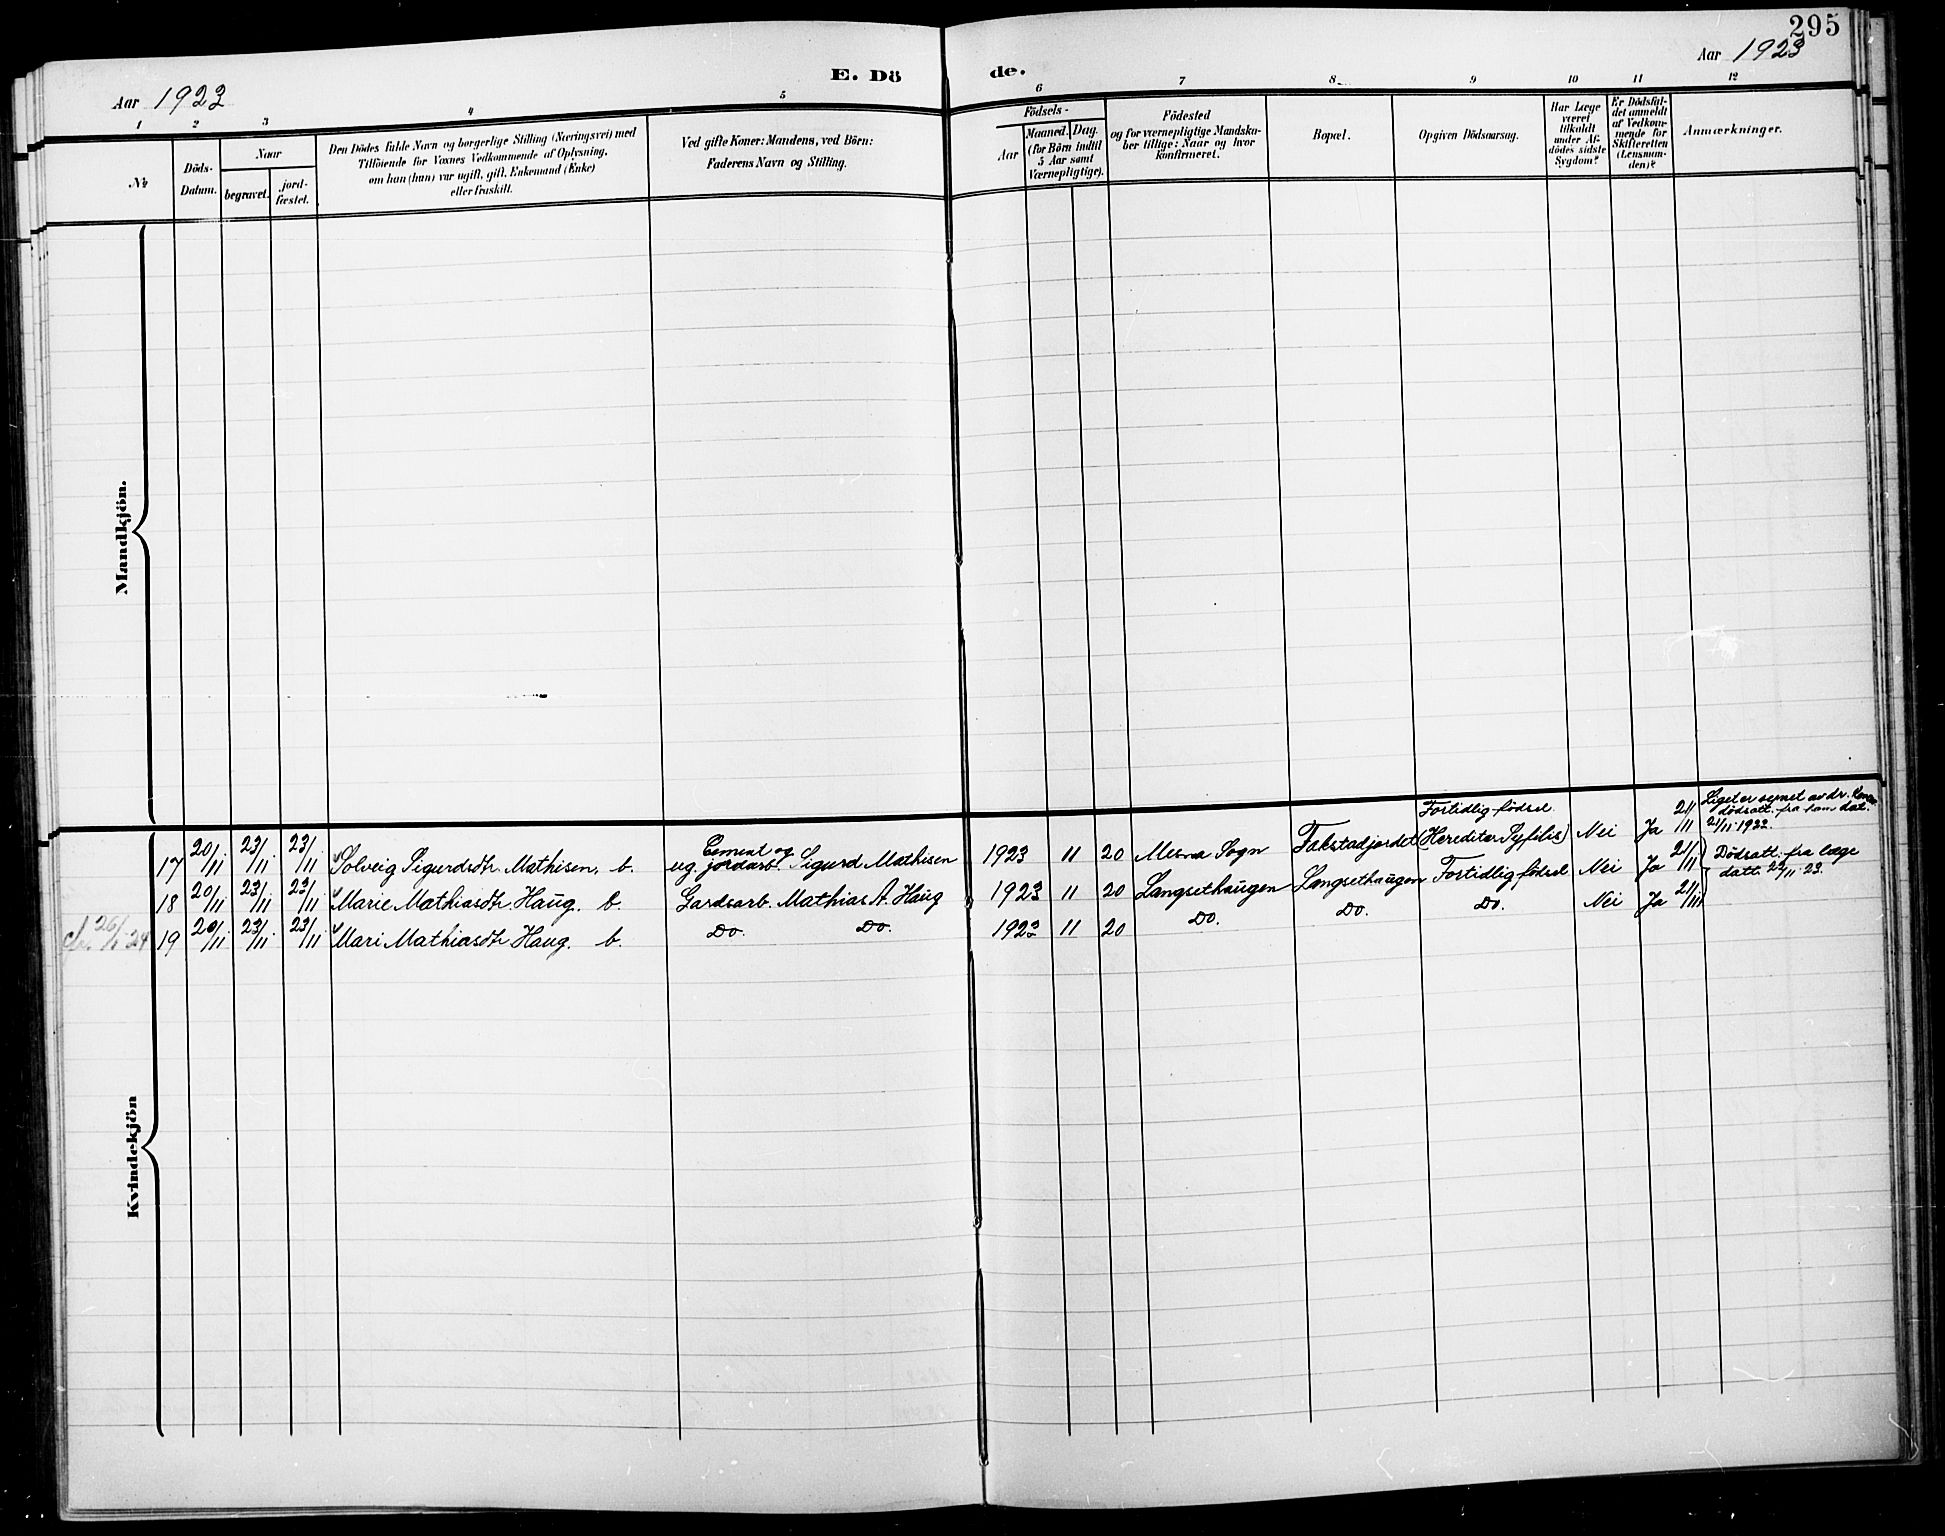 295
Aar 1923
E. Dö
de.
Aar 1923
1 2 3 4 5 6 7 8 9 10 11 12
No
Döds-Datum.
Naar
begravet.
jord-fæstet.
Den Dödes fulde Navn og borgerlige Stilling (Næringsvei) med
Tilföiende for Voxnes Vedkommende af Oplysning,
om han (hun) var ugift, gift, Enkemand (Enke)
eller fraskilt.
Ved gifte Koner: Mandens, ved Börn:
Faderens Navn og Stilling.
Födsels-
Aar
Maaned. Dag.
(for Börn indtil
5 Aar samt
Værnepligtige).
Födested
og for værnepligtige Mandska-
ber tillige: Naar og hvor
konfirmeret.
Bopæl.
Opgiven Dödsaarsag.
Har Læge
været
tilkaldt
under Af-
dödes sidste
Sygdom?
Er Dödsfal-
det anmeldt
af Vedkom-
mende for
Skifteretten
(Lensman-
den)?
Anmærkninger.
Mandkjön.
Kvindekjön
17 20/11 23/11 23/11 Solveig Sigurdsdtr Mathisen. b. Cement og ug. jordarb. Sigurd Mathisen 1923 11 20 Mesna Sogn Takstadjordet Fortidlig fødsel (Hereditær Syfilis) Nei Ja 21/11 Liget er synet av dr. dødsatt. fra ham dat. 21/11 1923.
18 20/11 23/11 23/11 Marie Mathiasdtr Haug. b. Gardsarb. Mathias A. Haug 1923 11 20 Langsethaugen Langsethaugen Fortidlig fødsel Nei Ja 21/11 Dødsatt. fra læge datt. 22/11 23.
26/1 24 19 20/11 23/11 23/11 Mari Mathiasdtr Haug. b. Do. Do. 1923 11 20 Do. Do. Do. Nei Ja 21/11